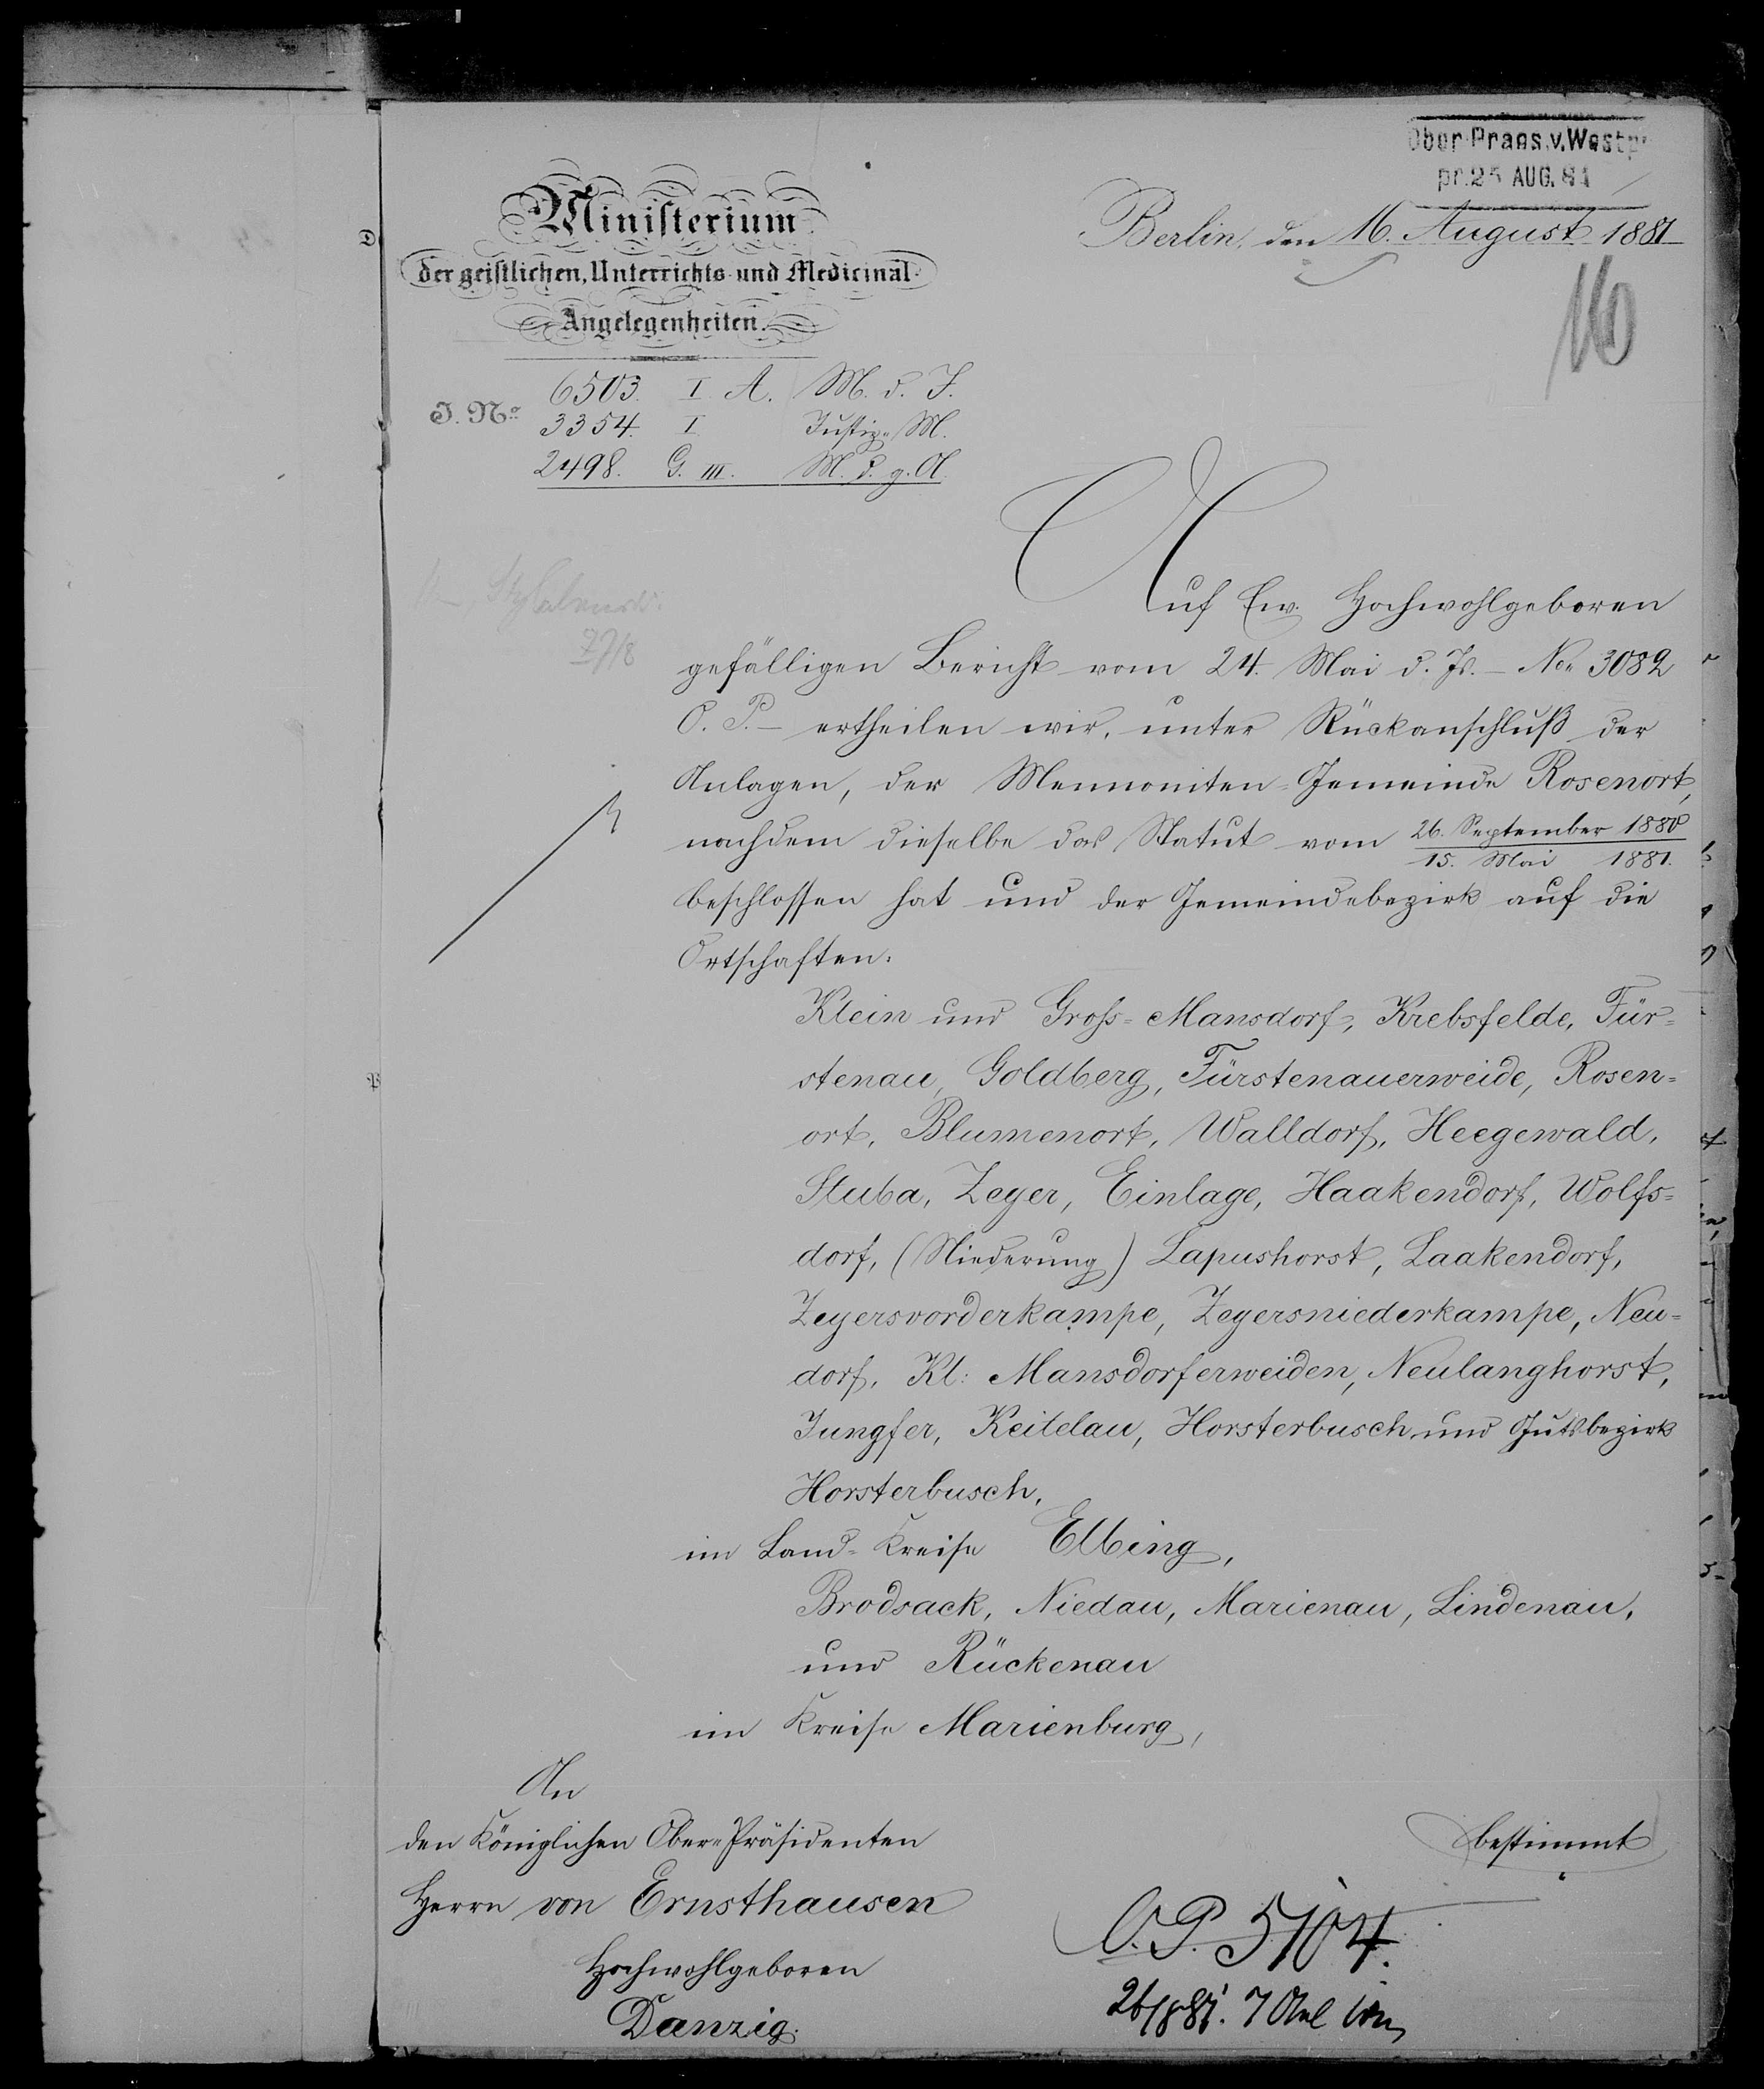 Ober-Praes.v.Westpr
pr.25 AUG.81
Ministerium
der geistlichen, Unterrichts- und Medicinal-
Angelegenheiten.
Berlin, den 16. August 1881
16
J. No.
6503. I. A. M. d. J.
3354. I Justiz-M.
2498. G. III. M. d. g. A.
27/8
Auf Ew. Hochwohlgeboren
gefälligen Bericht vom 24. Mai d. Js. – No. 3082
O. P. – ertheilen wir, unter Rückanschluß der
Anlagen, der Mennoniten-Gemeinde Rosenort,
nachdem dieselbe das Statut vom 26. September 1880
15. Mai 1881.
beschlossen hat und der Gemeindebezirk auf die
Ortschaften:
Klein und Gross-Mansdorf, Krebsfelde, Für-
stenau, Goldberg, Fürstenauerweide, Rosen-
ort, Blumenort, Walldorf, Heegewald,
Stuba, Zeyer, Einlage, Haakendorf, Wolfs-
dorf, (Niederung) Lapushorst, Laakendorf,
Zeyersvorderkampe, Zeyersniederkampe, Neu-
dorf, Kl: Mansdorferweiden, Neulanghorst,
Jungfer, Keitelau, Horsterbusch und Gutsbezirk
Horsterbusch,
im Land-Kreise Elbing,
Brodsack, Niedau, Marienau, Lindenau,
und Rückenau
im Kreise Marienburg,
bestimmt
An
den Königlichen Ober-Präsidenten
Herrn von Ernsthausen
Hochwohlgeboren
Danzig.
O.P. 5104.
26/8 81.